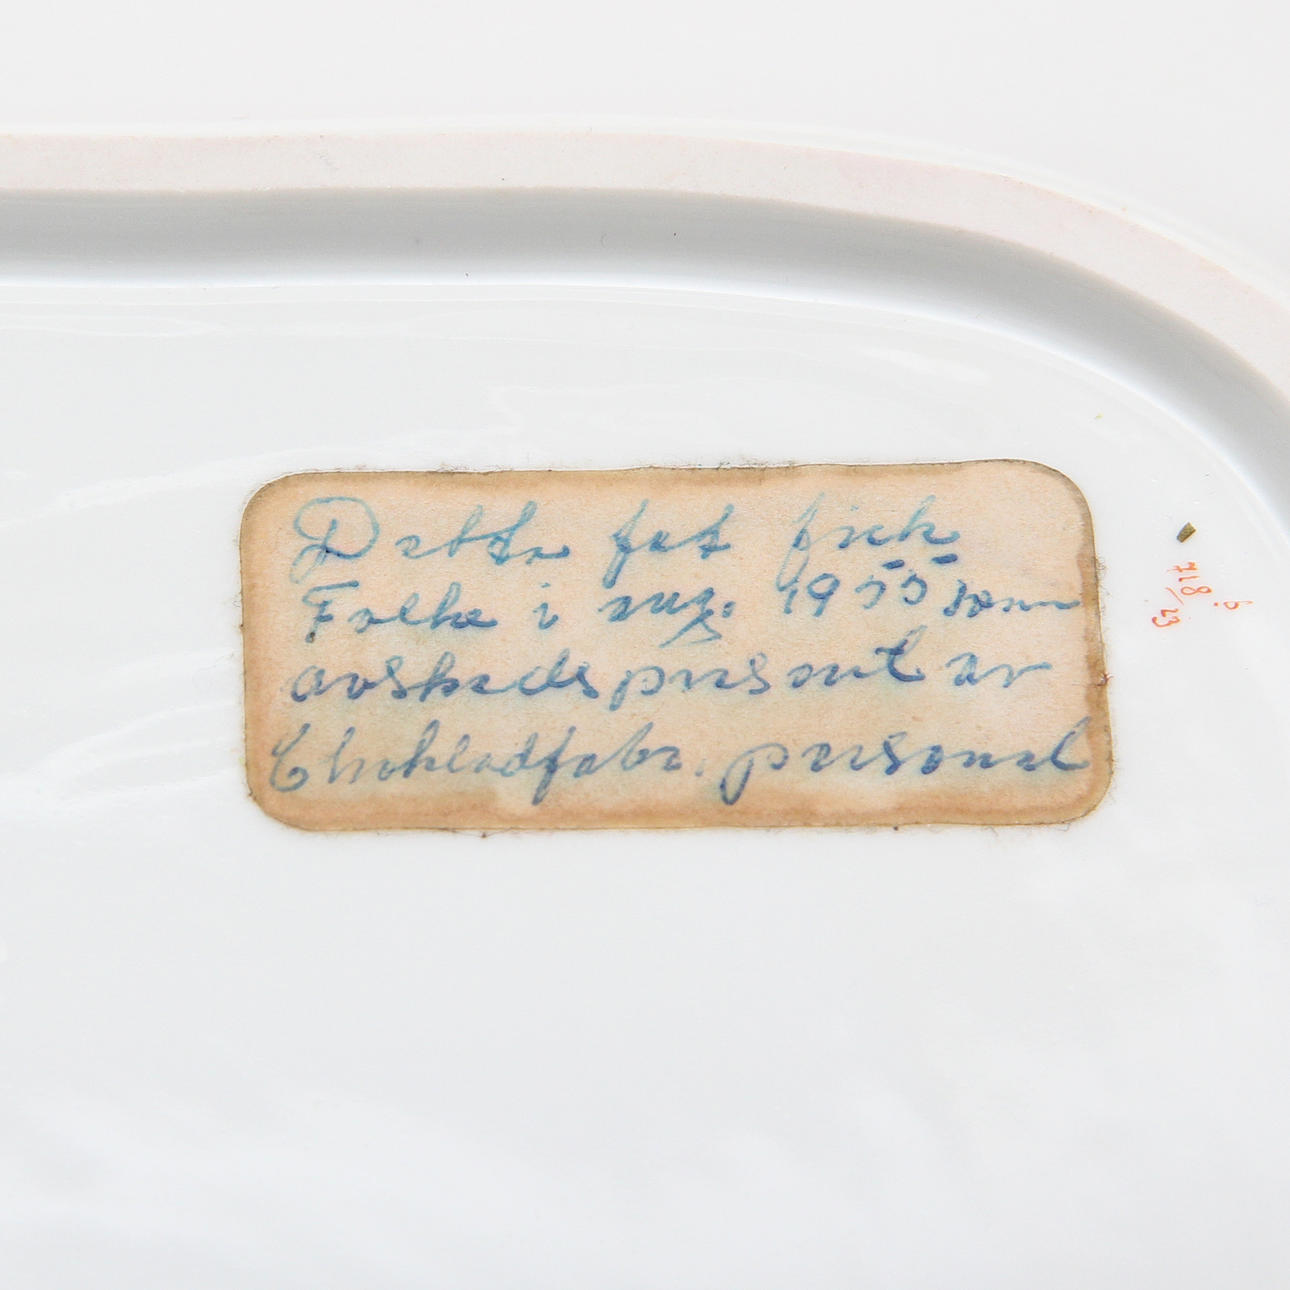 Detta fat fick
Folke i aug. 1955 som
avskedspresent av
Chokladfabr. personal
718/23
6